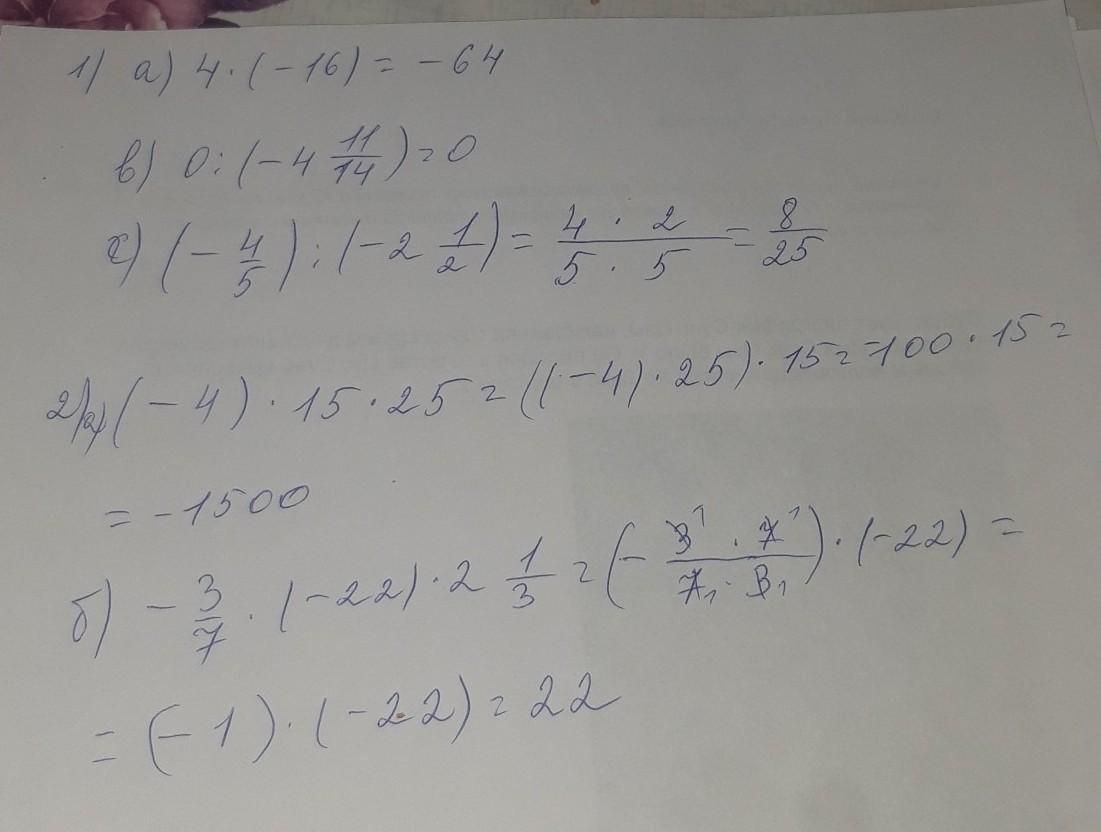 1) а) 4 · (-16) = -64
в) 0 : (-4 11/14) = 0
с) (-4/5) : (-2 1/2) = (4 · 2)/(5 · 5) = 8/25
2) а) (-4) · 15 · 25 = ((-4) · 25) · 15 = -100 · 15 =
= -1500
б) -3/7 · (-22) · 2 1/3 = (-(3¹ · 7¹)/(7₁ · 3₁)) · (-22) =
= (-1) · (-22) = 22